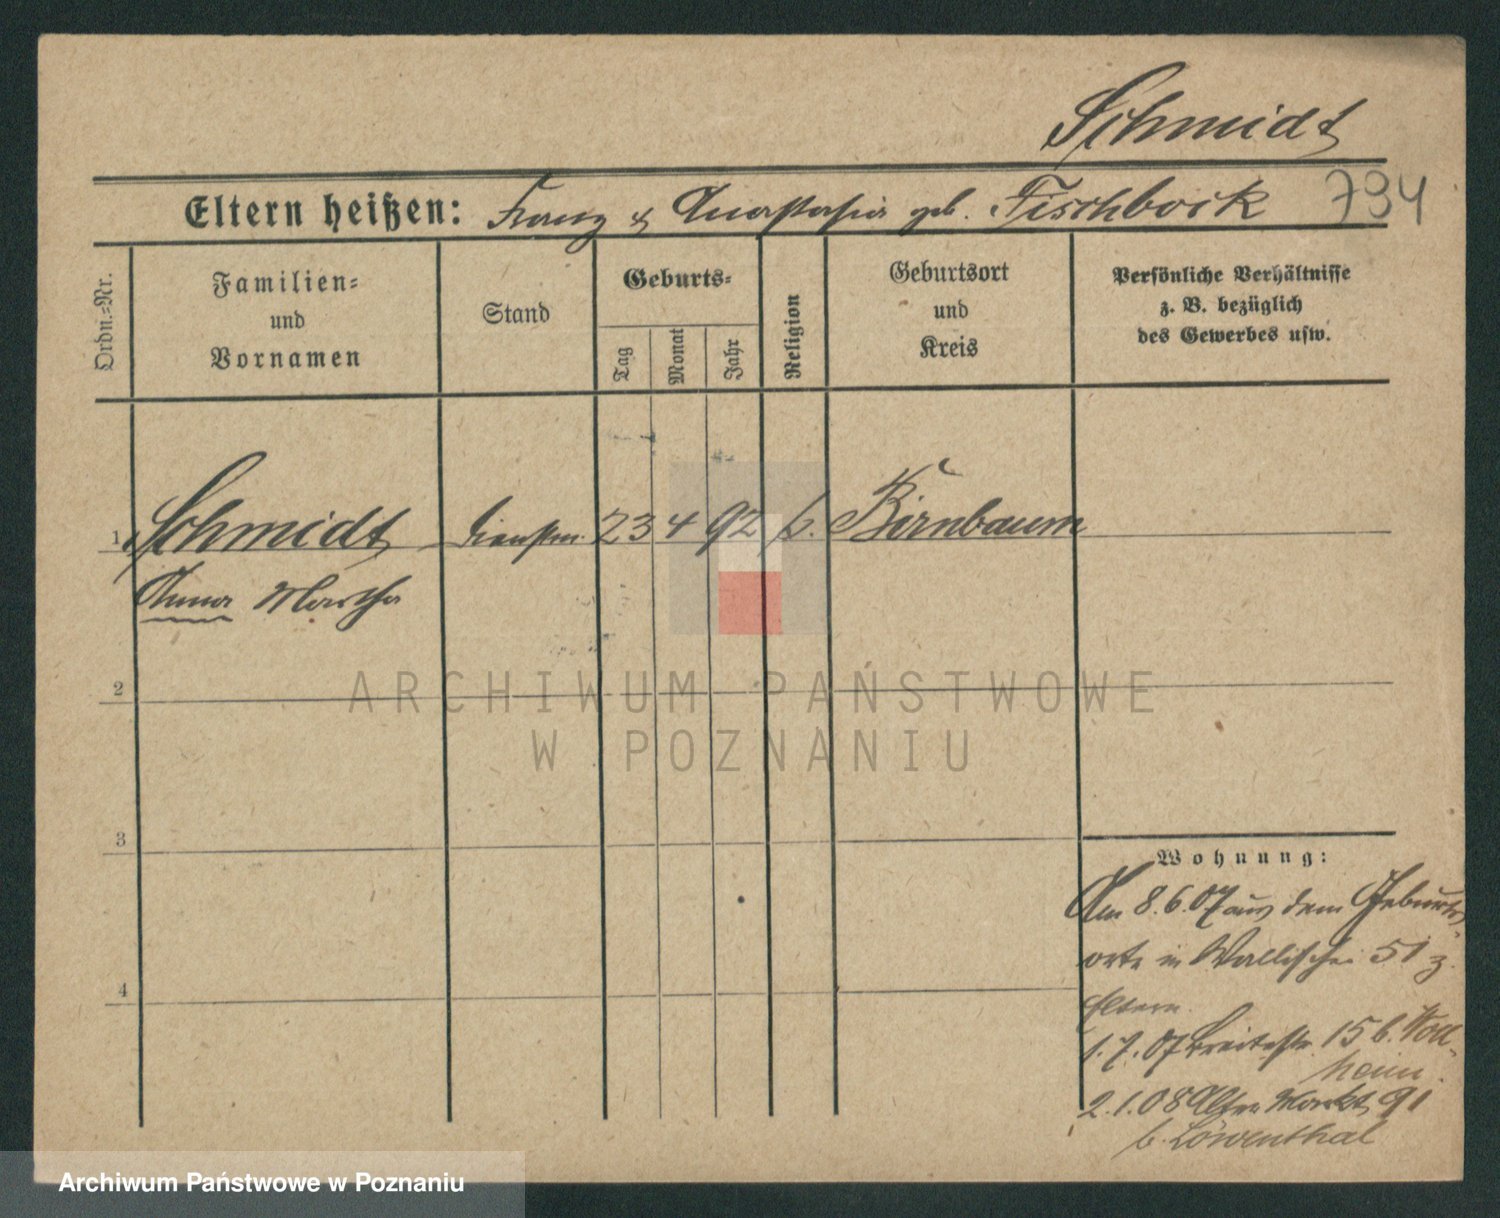 Schmidt
Eltern heißen: Franz & Anastasia geb. Fischbock 794
Ordn.=Nr.
Familien=
und
Vornamen
Stand
Geburts=
Tag
Monat
Jahr
Religion
Geburtsort
und
Kreis
Persönliche Verhältnisse
z. B. bezüglich
des Gewerbes usw.
1 Schmidt Dienstm. 23 4 92 k. Birnbaum
Anna Martha
2
ARCHIWUM PAŃSTWOWE
W POZNANIU
3
Wohnung:
Am 8.6.07 aus dem Geburts-
orte in Wallischei 51 z.
Eltern.
1.7.07 Breitestr. 15 b.
heim.
2.1.08 Alter Markt 91
b. Löwenthal
4
Archiwum Państwowe w Poznaniu